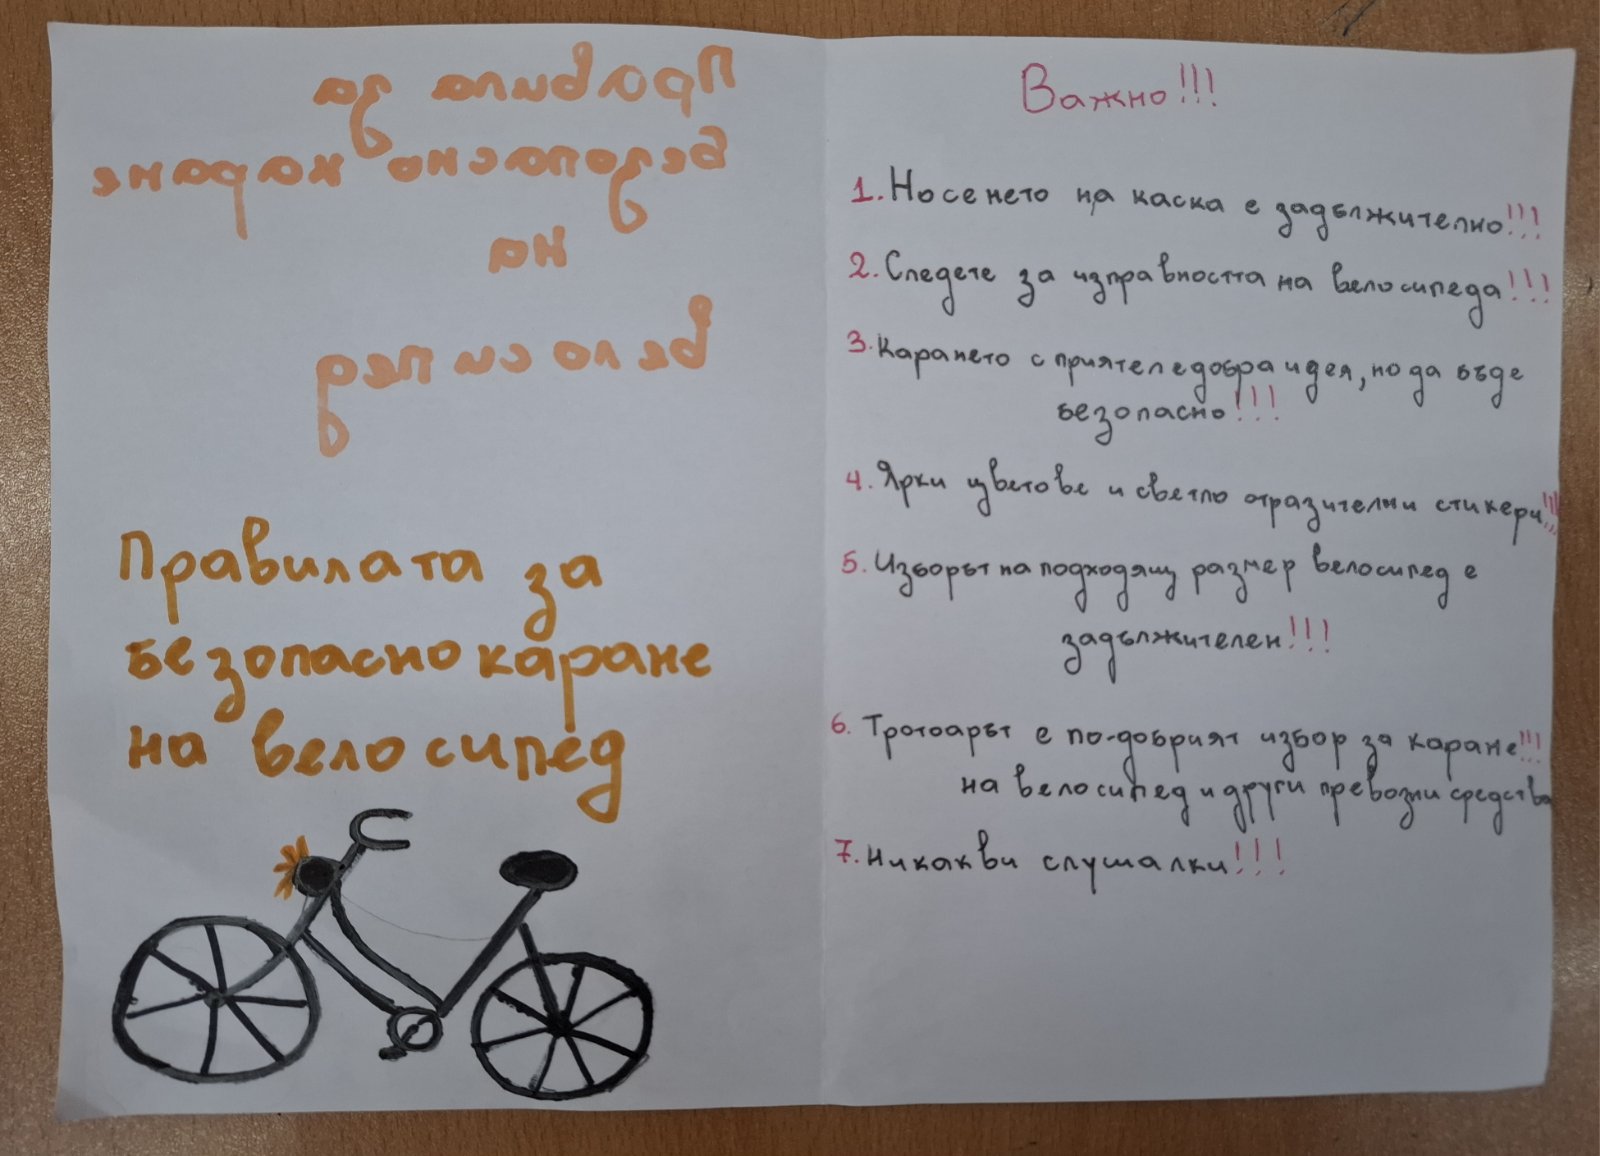 Правила за
безопасно каране
на
велосипед
Правилата за
безопасно каране
на велосипед
Важно!!!
1. Носенето на каска е задължително!!!
2. Следете за изправността на велосипеда!!!
3. Карането с приятел е добра идея, но да бъде
безопасно!!!
4. Ярки цветове и светло отразителни стикери!!!
5. Изборът на подходящ размер велосипед е
задължителен!!!
6. Тротоарът е по-добрият избор за каране!!!
на велосипед и други превозни средства
7. Никакви слушалки!!!